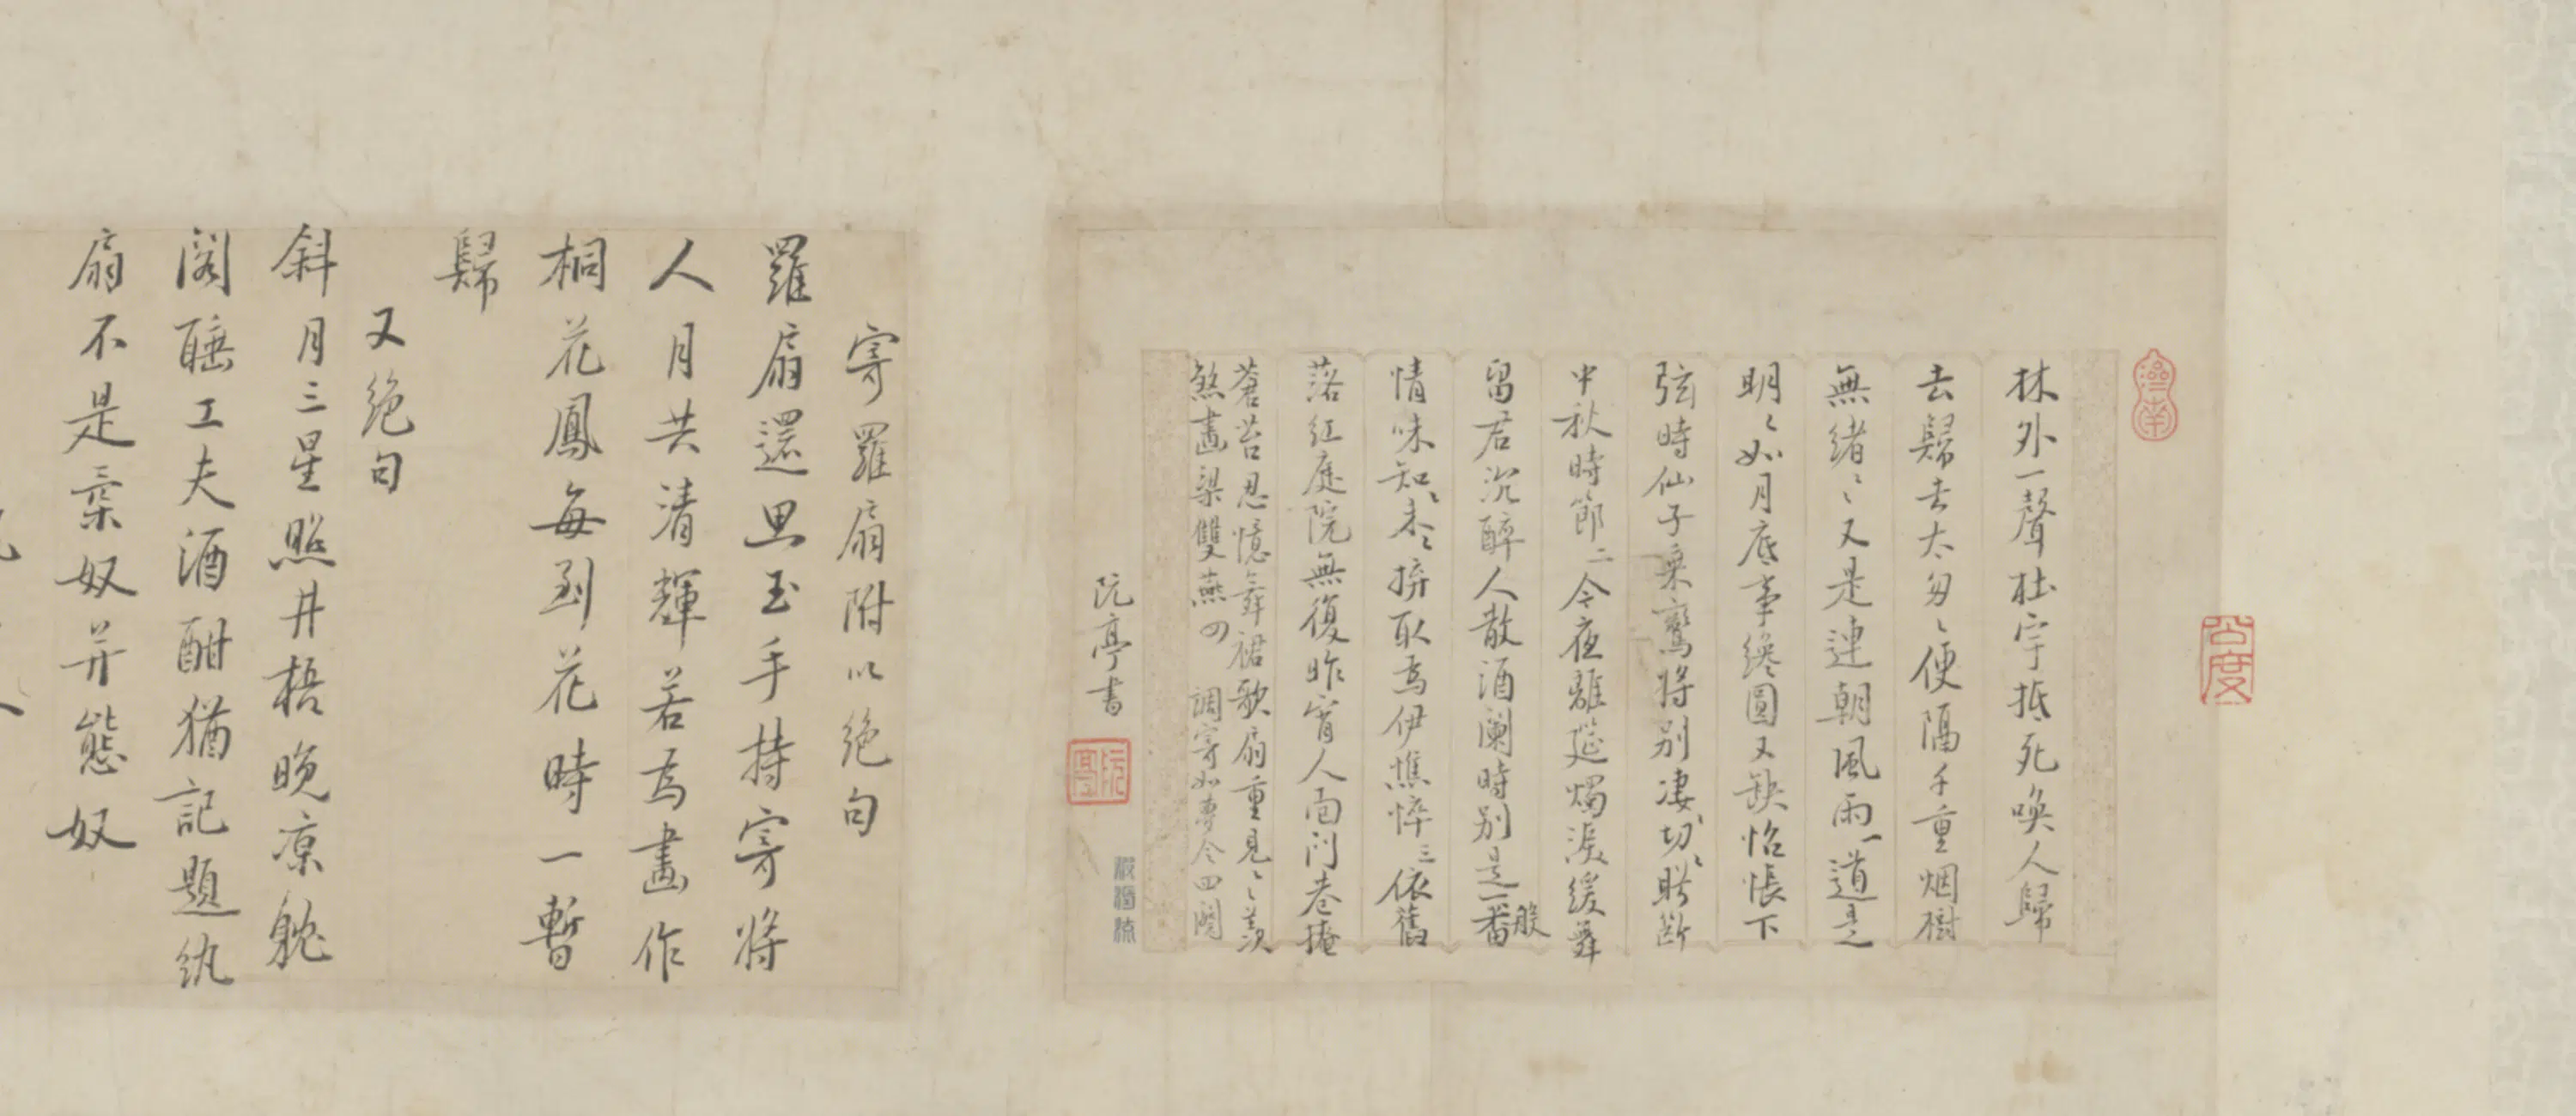 林外一聲杜宇抵死喚人歸
去歸去太匆〻便隔千重烟樹
無緒〻又是連朝風雨一道是
明〻如月底事纔圓又缺怊悵下
弦時仙子乘鸞將別凄切〻腸斷
中秋時節二今夜離筵燭淚緩舞
留君沉醉人散酒闌時別是一番
般
情味知〻未〻拚取為伊憔悴三依舊
落紅庭院無復昨宵人面門巷掩
蒼苔忍憶舞裙歌扇重見〻羨
煞畫梁雙燕四 調寄如夢令四闋
阮亭書
阮亭
公度
寄羅扇附以絕句
羅扇還思玉手持寄將
人月共清輝若為畫作
桐花鳳每到花時一暫
歸
又絕句
斜月三星照井梧晚涼
閣睡工夫酒酣猶記題紈
扇不是棄奴并態奴